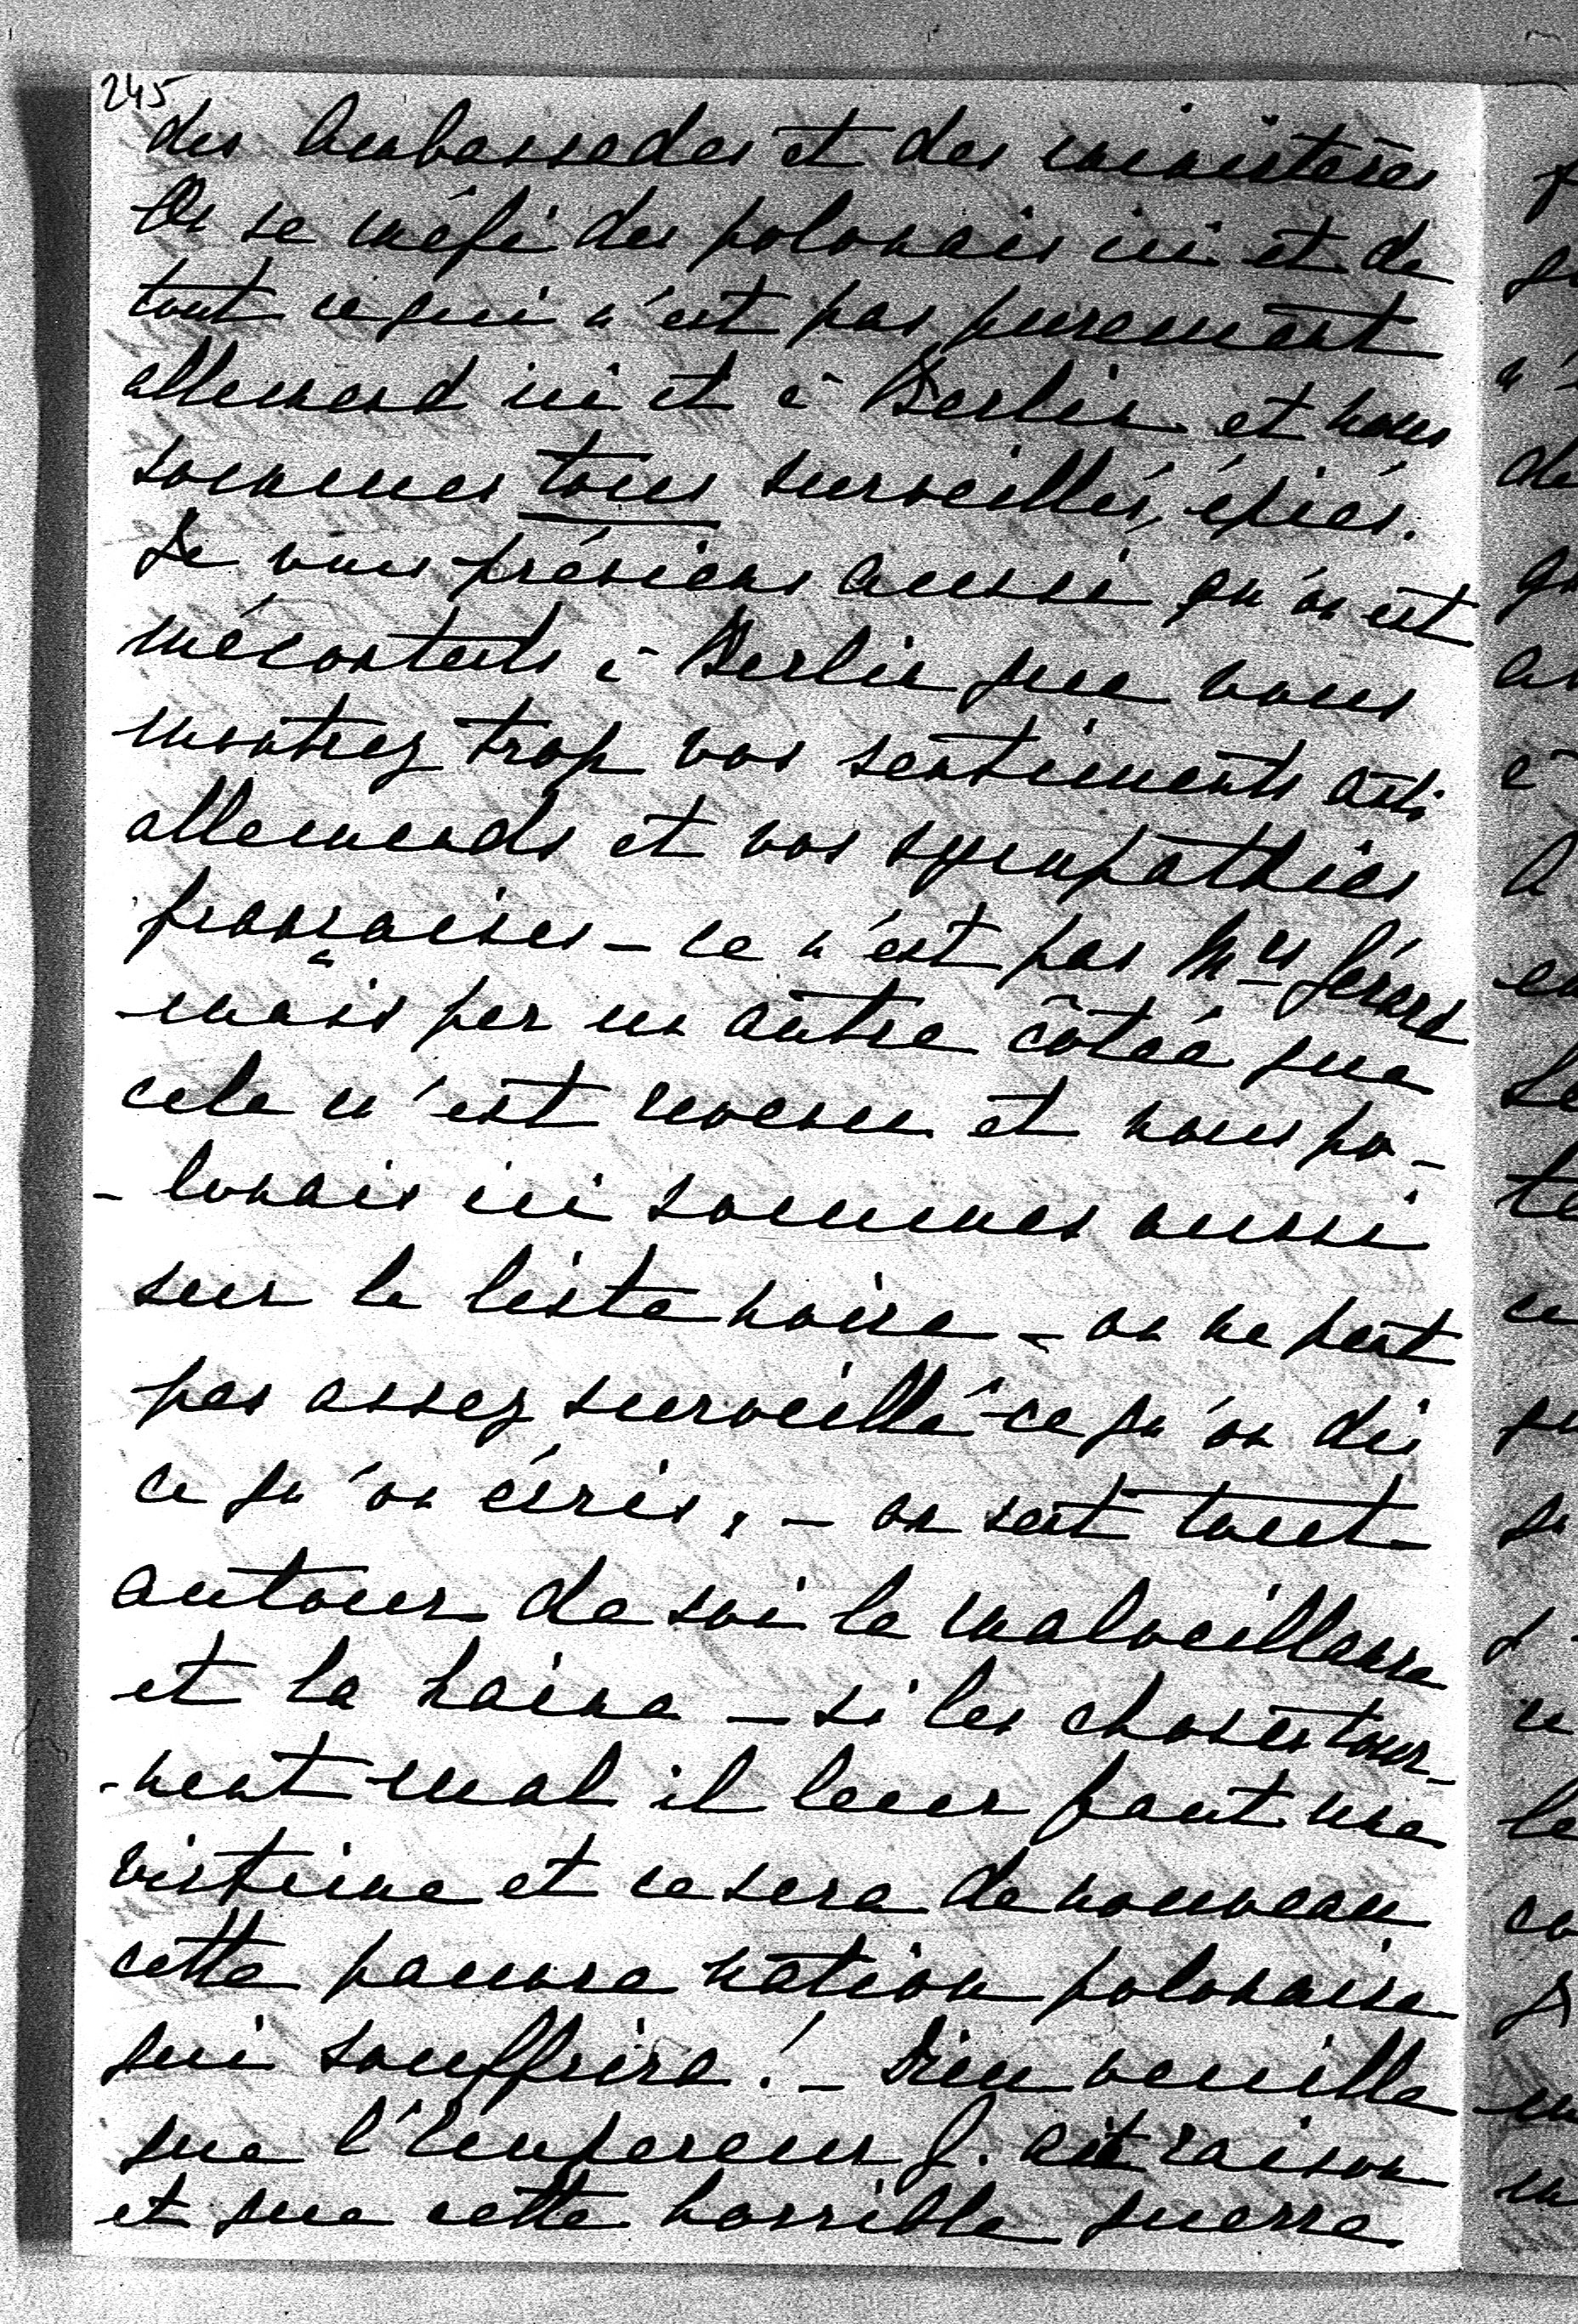 245
des Ambassades et des ministères
On se méfi des polonais ici et de
tout ce qui n'est pas purement
allemand ici et à Berlin et nous
sommes tous surveillés, épiés.
Je vous préviens aussi qu'on est
mécontents à Berlin que vous
montrez trop vos sentiments anti
allemands et vos sympathies
françaises – ce n'est pas Mrs Gérard
mais par un autre côtée que
cela m'est revenu et nous po-
-lonais ici sommes aussi
sur la liste noire – on ne peut
pas assez surveillé ce qu'on dis
ce qu'on écris, – on sent tout
autour de soi la malveillance
et la haine – si les choses tour-
-nent mal il leur faut une
victime et ce sera de nouveau
cette pauvre nation polonaise
qui souffrira! – Dieu veuille
que l'Empereur G. ait raison
et que cette horrible guerre